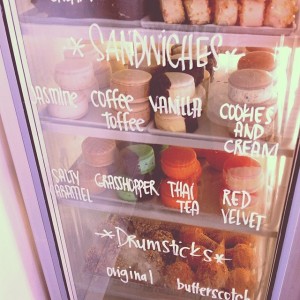 *SANDWICHES*
Jasmine COFFEE TOFFEE VANILLA COOKIES AND CREAM
SALTY CARAMEL GRASSHOPPER THAI TEA RED VELVET
*DRUMSTICKS*
original butterscotch